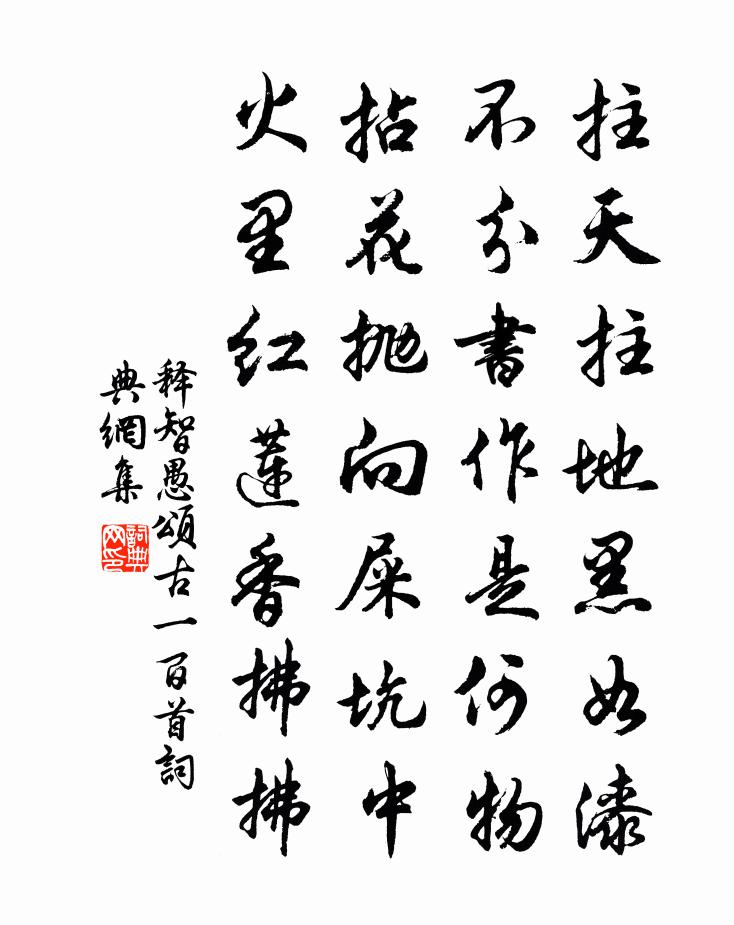 拄天拄地黑如漆
不分書作是何物
拈花抛向屎坑中
火里红蓮香拂拂
释智愚頌古一百首詞
典網集
詞典
网印